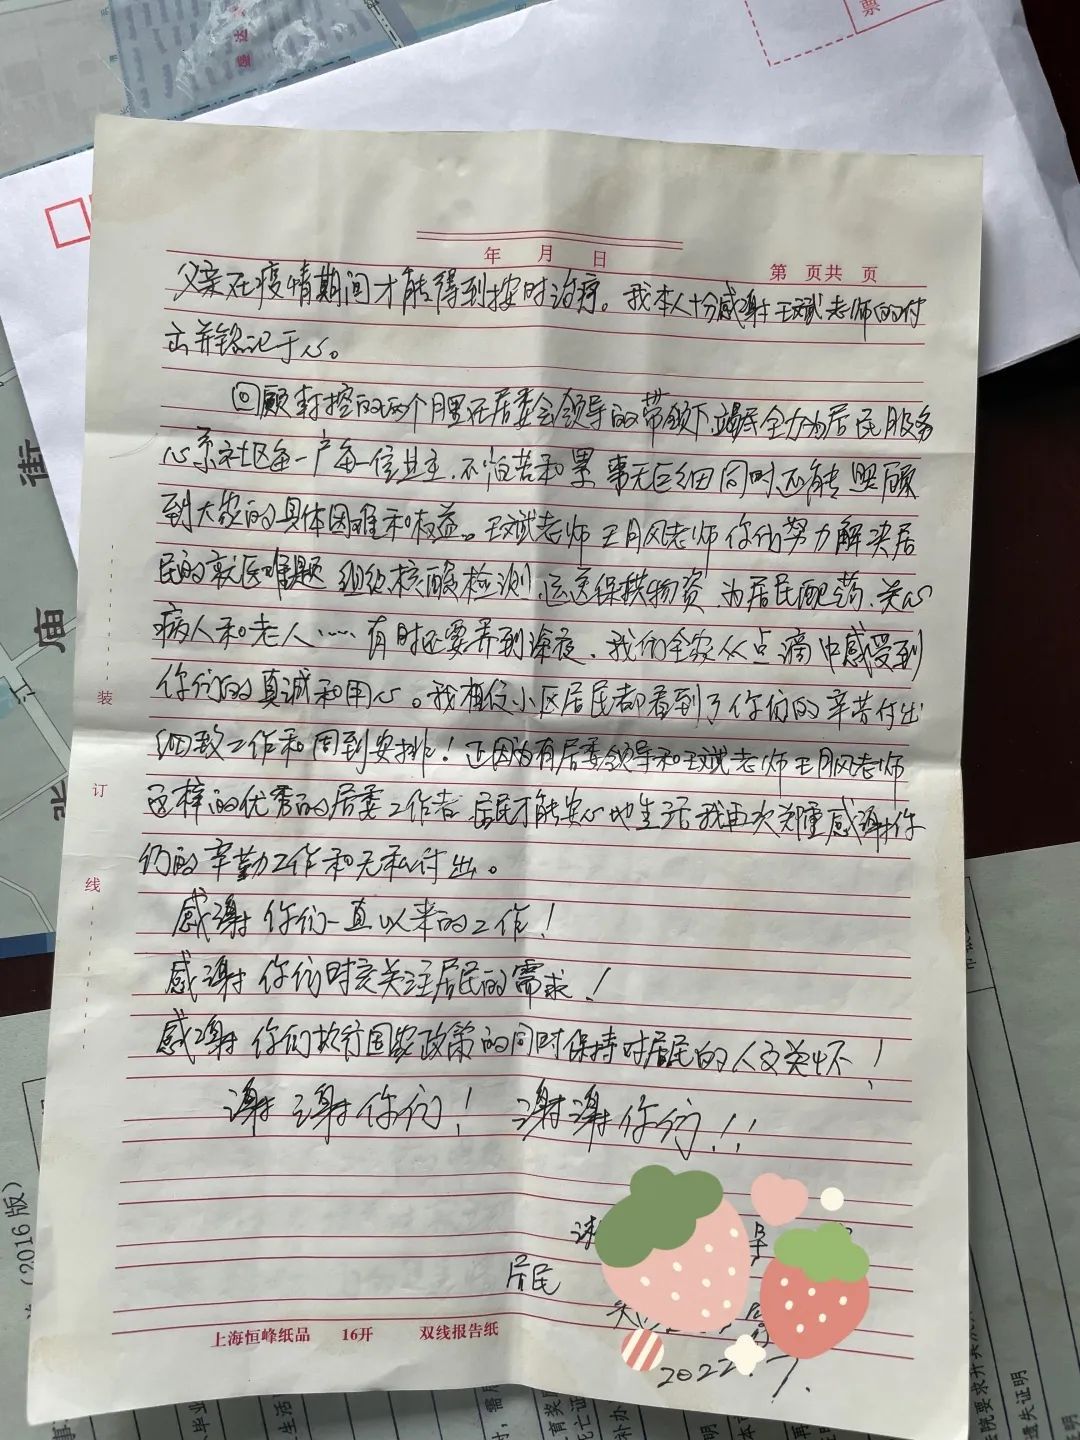 票
年 月 日
第 页共 页
父亲在疫情期间才能得到按时治疗。我本人十分感谢王斌老师的付
出并铭记于心。
回顾封控的两个月里在居委会领导的带领下竭尽全力为居民服务
心系社区每一户每一位业主、不怕苦和累 事无巨细同时还能照顾
到大家的具体困难和权益。王斌老师 王月风老师你们努力解决居
民的就医难题 组织核酸检测、运送保供物资、为居民配药、关心
病人和老人……有时还要弄到深夜、我们全家从点滴中感受到
你们的真诚和用心。我相信小区居民都看到了你们的辛苦付出
细致工作和周到安排！正因为有居委领导和王斌老师王月风老师
这样的优秀的居委工作者 居民才能安心地生活我再次郑重感谢你
们的辛勤工作和无私付出。
感谢你们一直以来的工作！
感谢你们时刻关注居民的需求！
感谢你们执行国家政策的同时保持对居民的人文关怀！
谢谢你们！ 谢谢你们！！
居民
2022.7.
装
订
线
上海恒峰纸品 16开 双线报告纸
街
庙
(2016版)
遗失证明